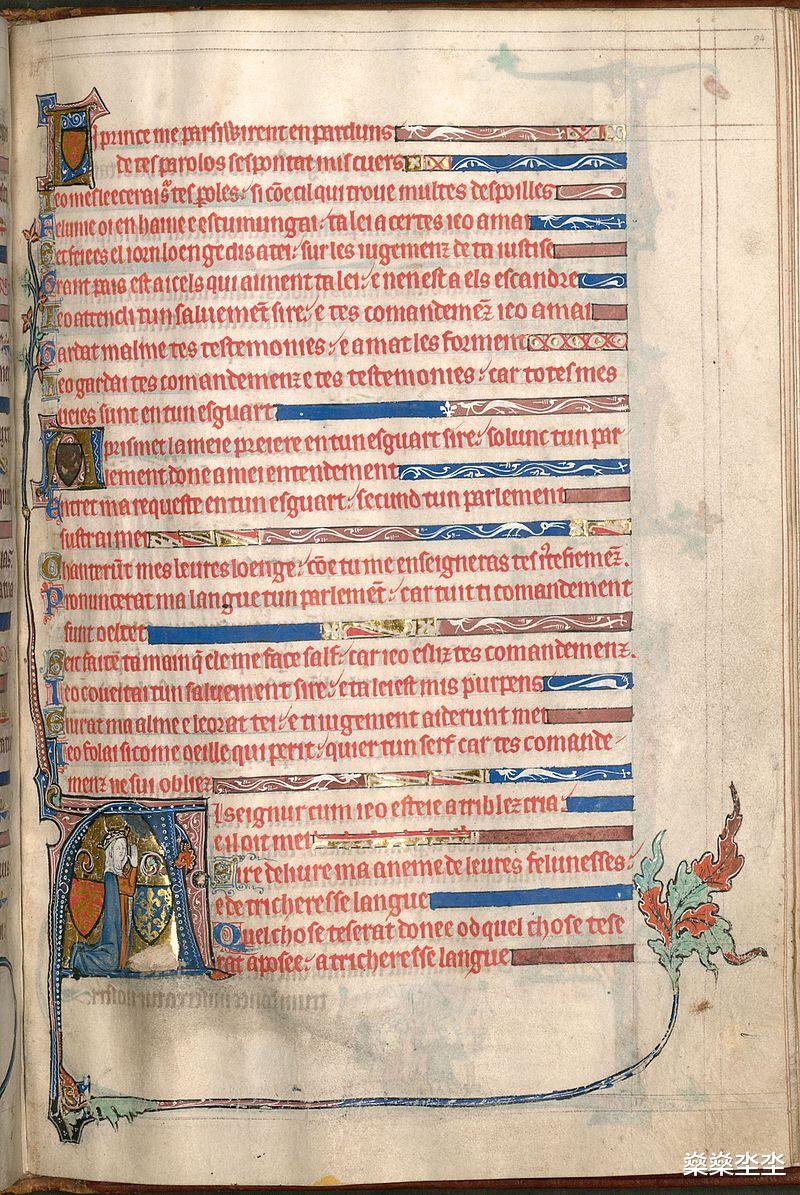 94
Li prince me parsiwirent en parduns
de tes parolos sespontat mis cuers
Ieo mesleecerai sr̄ tes poles: si cōe cil qui trove multes despoilles
Felunie oi en haiue e escumungai: ta lei acertes ieo amai
Set feiees el iorn loenge dis a tei: sur les iugemenz de ta iustise
Grant pais est a icels qui aiment ta lei: e nen est a els escandre
Ieo attendi tun saluemēt sire: e tes comandemēz ieo amai
Gardat malme tes testemonies: e amat les forment
Ieo gardai tes comandemenz e tes testemonies: car totes mes
ueies sunt en tun esguart
Aprismet la meie preiere en tun esguart sire: solunc tun par
lement done a mei entendement
Entret ma requeste en tun esguart: secund tun parlement
sustrai mei
Chanterūt mes leures loenge: cōe tu me enseigneras tes
Pronuncerat ma langue tun parlemēt: car tuit ti comandement
sunt oeltet
Seit faite ta main q̄ ele me face salf: car ieo esliz tes comandemenz.
Ieo coueitai tun saluement sire: e ta lei est mis purpens
Viurat ma alme e leorat tei: e ti iugement aiderunt mei
Ieo folai sicome oeille qui perit: quier tun serf car tes comande-
menz ne sui obliez
Al seignur cum ieo esteie atriblez criai
e il oit mei
Sire deliure ma aneme de leures felunesses:
e de tricheresse langue
Quel chose te serat donee od quel chose te se
rat aposee: a tricheresse langue
燊燊坔坔